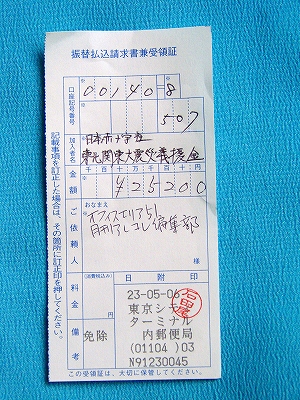 振替払込請求書兼受領証
口座記号番号
00140-8
507
加入者名
日本赤十字社
東北関東大震災義援金
金額
千 百 十 万 千 百 十 円
¥25200
ご依頼人
おなまえ
オフィスエリア51
月刊アレコレ編集部
料金
(消費税込み)
備考
免除
日附印
23-05-06
東京シティ
ターミナル
内郵便局
(01104 )03
N91230045
記載事項を訂正した場合は、その箇所に訂正印を押してください。
この受領証は、大切に保管してください。